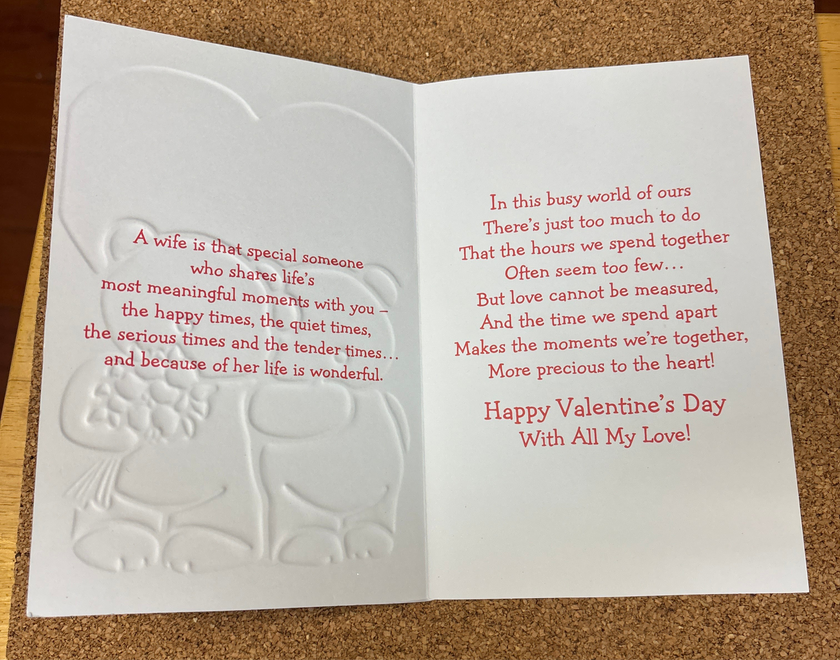 A wife is that special someone
who shares life's
most meaningful moments with you –
the happy times, the quiet times,
the serious times and the tender times...
and because of her life is wonderful.
In this busy world of ours
There's just too much to do
That the hours we spend together
Often seem too few...
But love cannot be measured,
And the time we spend apart
Makes the moments we're together,
More precious to the heart!
Happy Valentine's Day
With All My Love!